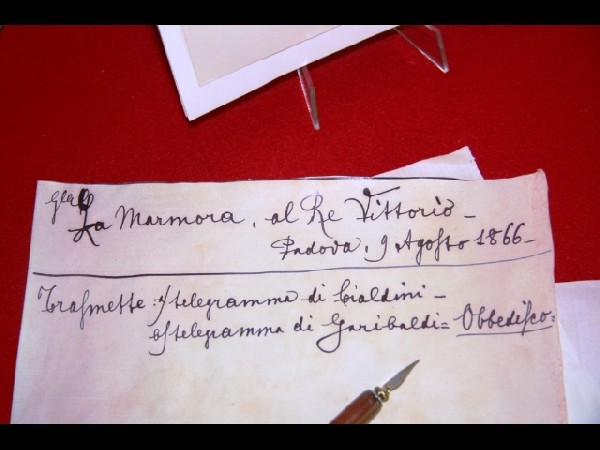 Gle La Marmora, al Re Vittorio -
Padova, 9 Agosto 1866 -
Trasmette: a/ telegramma di Cialdini -
b/ telegramma di Garibaldi = Obbedisco =